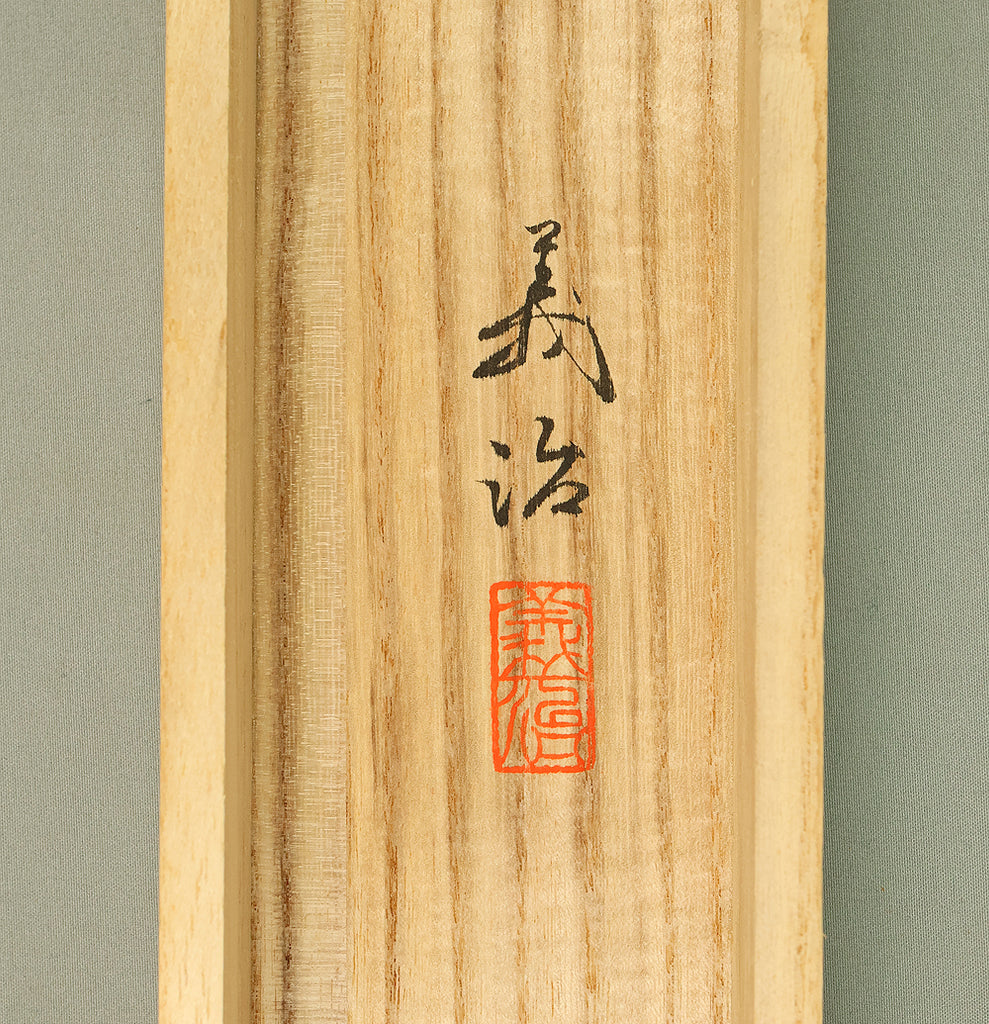 義治
義治